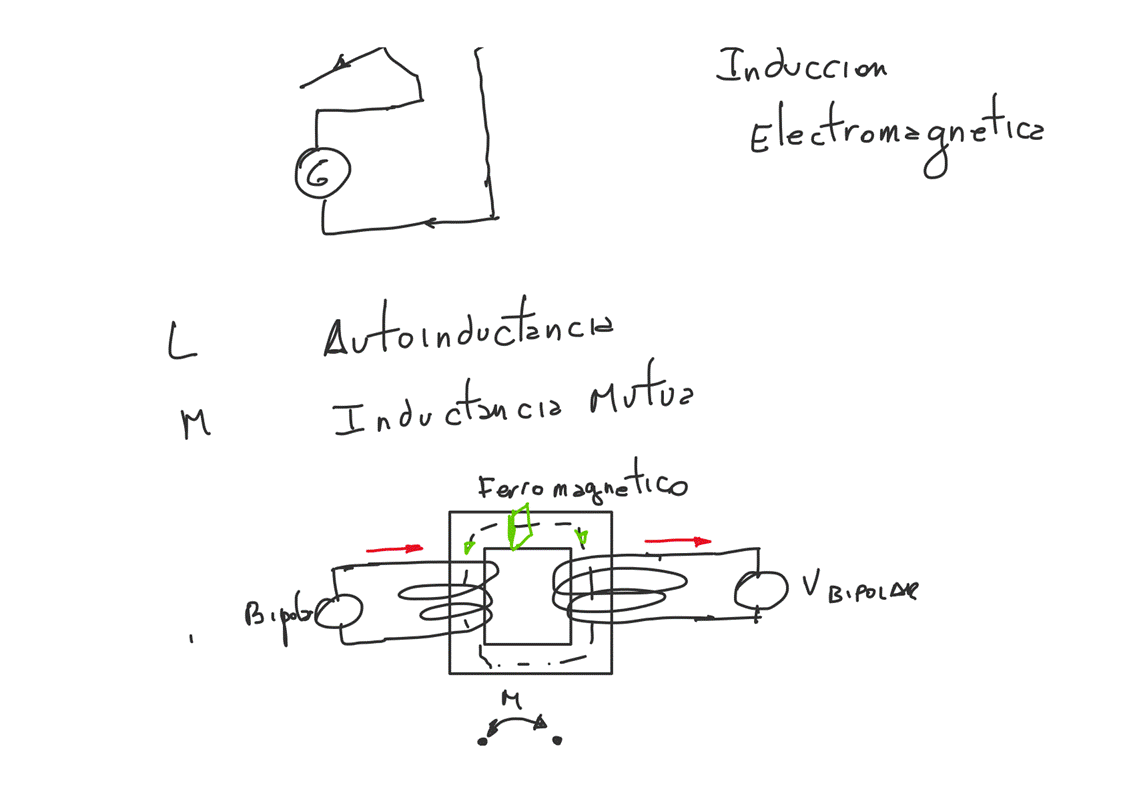 Induccion
Electromagnetica
G
L Autoinductancia
M Inductancia Mutua
Ferromagnetico
Bipolar
V BIPOLAR
M